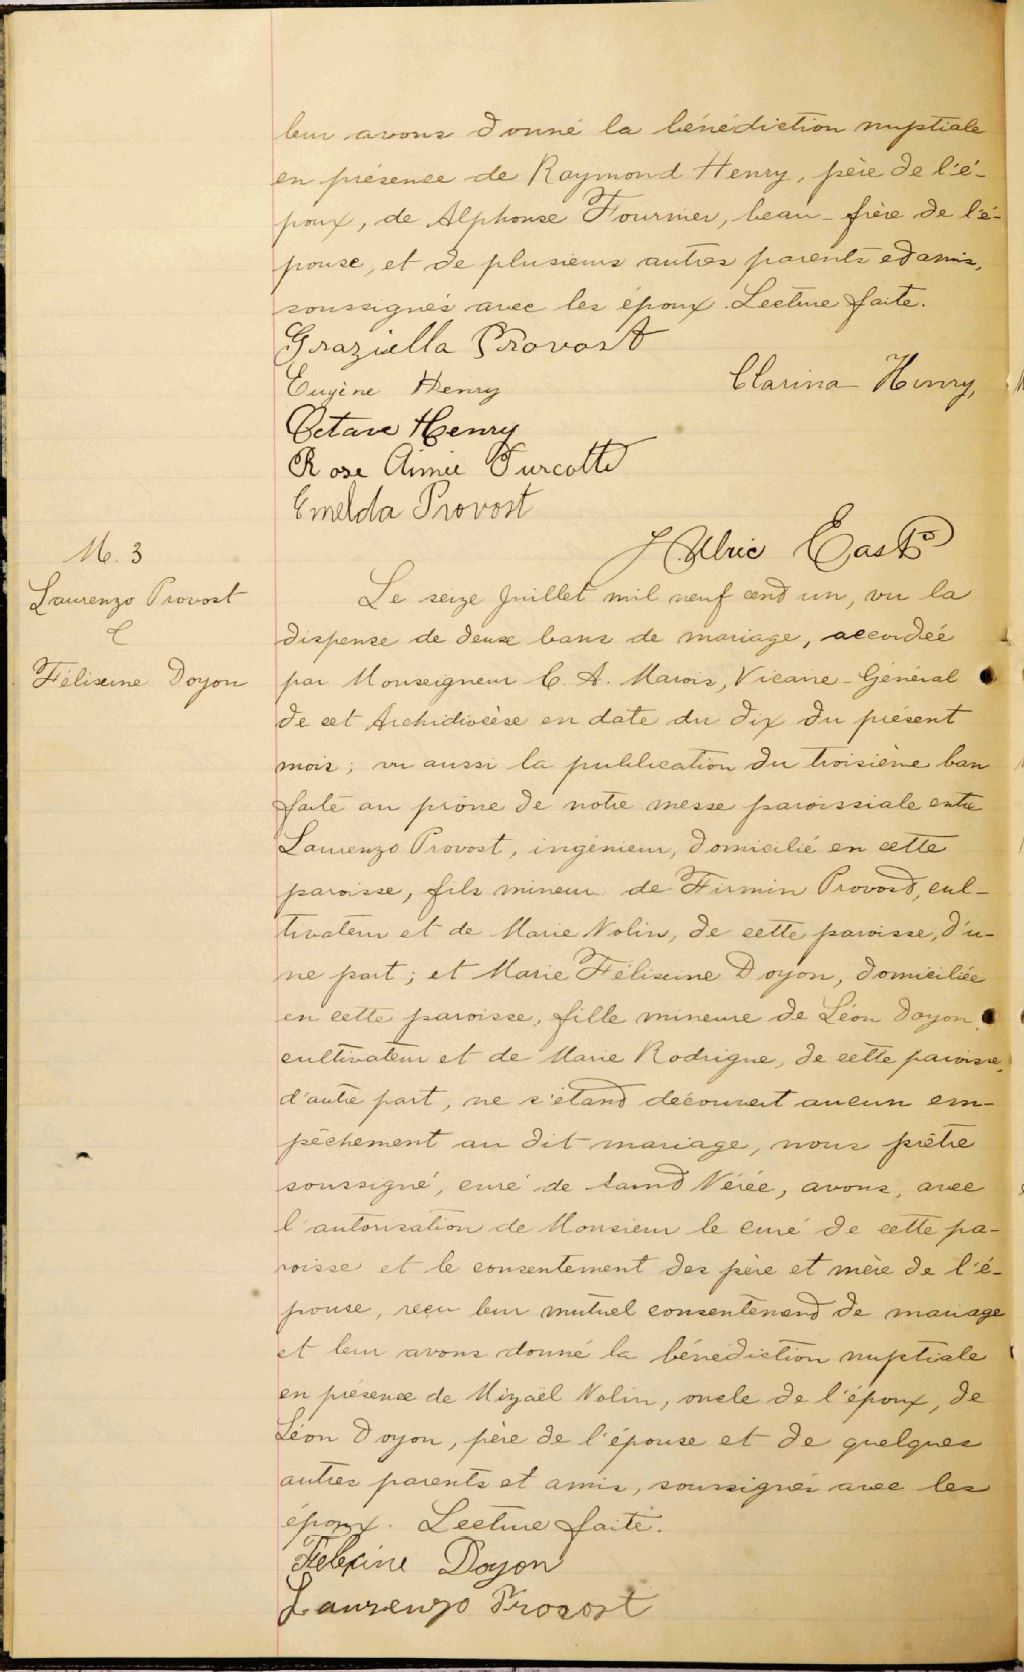 leur avons donné la bénédiction nuptiale
en présence de Raymond Henry, père de l'é-
poux, de Alphonse Fournier, beau-frère de l'é-
pouse, et de plusieurs autres parents et amis,
soussignés avec les époux. Lecture faite.
Graziella Provost
Eugène Henry
Clarina Henry,
Octave Henry
Rose Aimée Turcotte
Emelda Provost
J. Ulric East Ptre
M. 3
Laurenzo Provost
&
Félixine Doyon
Le seize Juillet mil neuf cent un, vu la
dispense de deux bans de mariage, accordée
par Monseigneur C. A. Marois, Vicaire-Général
de cet Archidiocèse en date du dix du présent
mois; vu aussi la publication du troisième ban
faite au prône de notre messe paroissiale entre
Laurenzo Provost, ingénieur, domicilié en cette
paroisse, fils mineur de Firmin Provost, cul-
tivateur et de Marie Nolin, de cette paroisse, d'u-
ne part; et Marie Félixine Doyon, domiciliée
en cette paroisse, fille mineure de Léon Doyon,
cultivateur et de Marie Rodrigue, de cette paroisse,
d'autre part, ne s'étant découvert aucun em-
pêchement au dit mariage, nous prêtre
soussigné, curé de Saint Nérée, avons, avec
l'autorisation de Monsieur le curé de cette pa-
roisse et le consentement des père et mère de l'é-
pouse, reçu leur mutuel consentement de mariage
et leur avons donné la bénédiction nuptiale
en présence de Mizaël Nolin, oncle de l'époux, de
Léon Doyon, père de l'épouse et de quelques
autres parents et amis, soussignés avec les
époux. Lecture faite.
Félexine Doyon
Laurenzo Provost